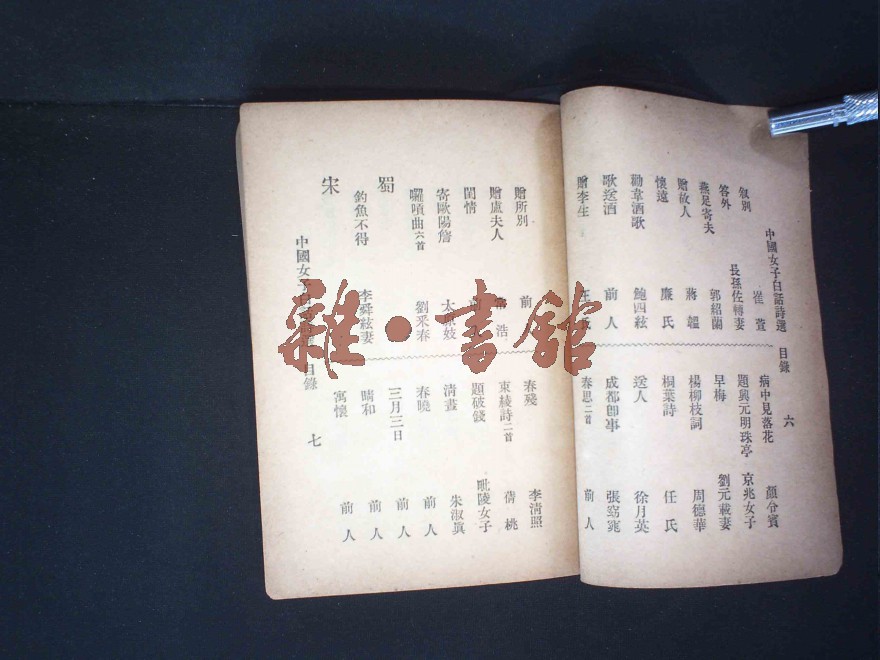 中國女子白話詩選 目錄 六
叙別 崔萱
答外 長孫佐轉妻
燕足寄夫 郭紹蘭
贈故人 蔣韞
懷遠 廉氏
勸韋酒歌 鮑四絃
歌送酒 前人
贈李生
病中見落花 顏令賓
題興元明珠亭 京兆女子
早梅 劉元載妻
楊柳枝詞 周德華
桐葉詩 任氏
送人 徐月英
成都卽事 張窈窕
春思二首 前人
贈所別 前
贈盧夫人 浩
閨情
寄歐陽詹 太原妓
囉嗊曲六首 劉采春
蜀
釣魚不得 李舜絃妻
宋
春殘 李清照
束綾詩二首 蒨桃
題破錢 毗陵女子
清晝 朱淑眞
春曉 前人
三月三日 前人
晴和 前人
寓懷 前人
中國女子白話詩選 目錄 七
雜·書館